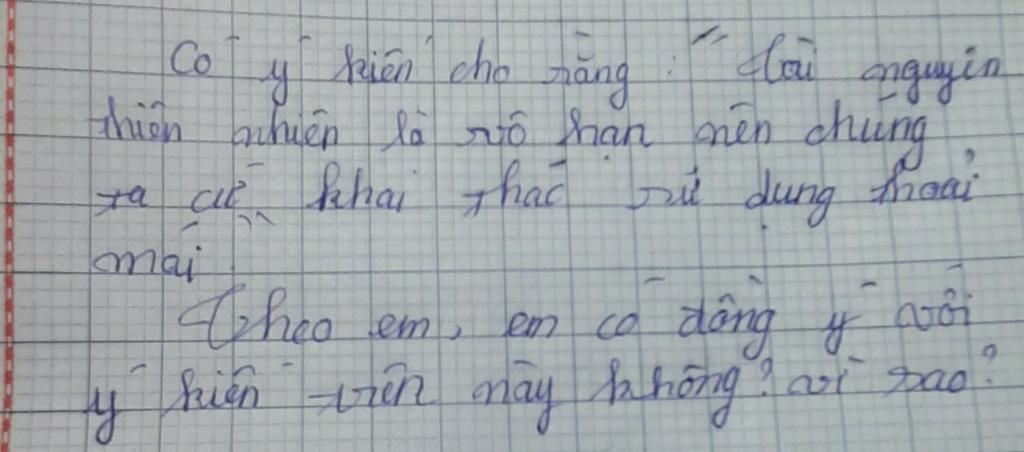 Có ý kiến cho rằng : " Tài nguyên
thiên nhiên là vô hạn nên chúng
ta cứ khai thác sử dụng thoải
mái "
Theo em, em có đồng ý với
ý kiến trên này không? vì sao?